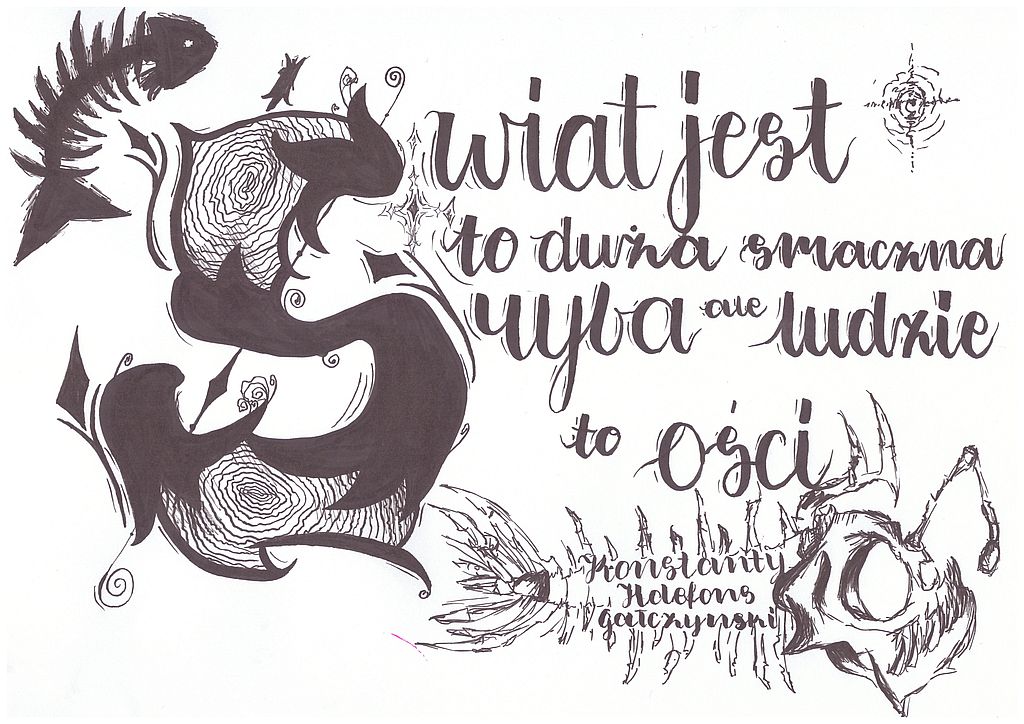 Świat jest
to duża smaczna
ryba ale ludzie
to ości
Konstanty
Ildefons
gałczynski